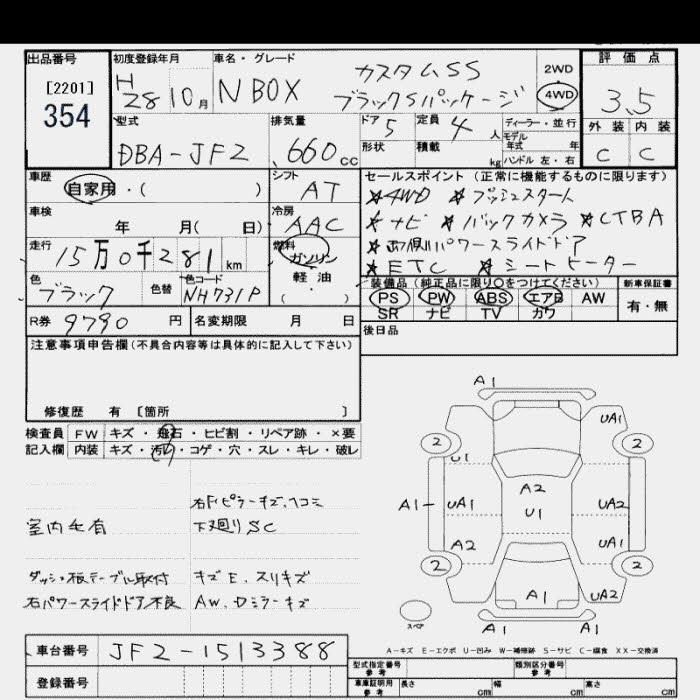 出品番号 初度登録年月 車名・グレード カスタムSS 2WD 評価点
[2201] H 28 10月 N BOX ブラックSパッケージ 4WD 3.5
354 型式 排気量 ドア 5 定員 4人 ディーラー・並行 外装 内装
DBA-JF2 660cc 形状 積載 kg モデル年式 年 ハンドル 左・右 C C
車歴 自家用・( ) シフト AT セールスポイント (正常に機能するものに限ります)
★4WD ★プッシュスタート
車検 年 月( 日) 冷房 AAC ★ナビ ★バックカメラ ★CTBA
走行 15万0千281km 燃料 ガソリン ★両側パワースライドドア
軽・油 ★ETC ★シートヒーター
色 ブラック 色替 色コード NH731P ( ) 装備品 (純正品に限り○をつけてください) 新車保証書
PS PW ABS エアB AW 有・無
SR ナビ TV カワ
R券 9790円 名変期限 月 日 後日品
注意事項申告欄(不具合内容等は具体的に記入して下さい)
修復歴 有 [箇所 ]
検査員 FW キズ・飛石・ヒビ割・リペア跡・×要
記入欄 内装 キズ・汚れ・コゲ・穴・スレ・キレ・破レ
右Fピラーキズ、ヘコミ
室内毛有 下廻りSC
ダッシュ板テーブル取付 キズE、スリキズ
右パワースライドドア不良 AW、Dミラーキズ
A1
UA1
2 2
U1
A1 UA1 A2 UA2
U1
A2 UA1
2 2
A1 UA2
スペア A1 A1
A-キズ E-エクボ U-凹み W-補修跡 S-サビ C-腐食 XX-交換済
車台番号 JF2-1513388
登録番号 型式指定番号 参考 類別区分番号 参考
車庫証明用 参考 長さ cm 幅 cm 高さ cm